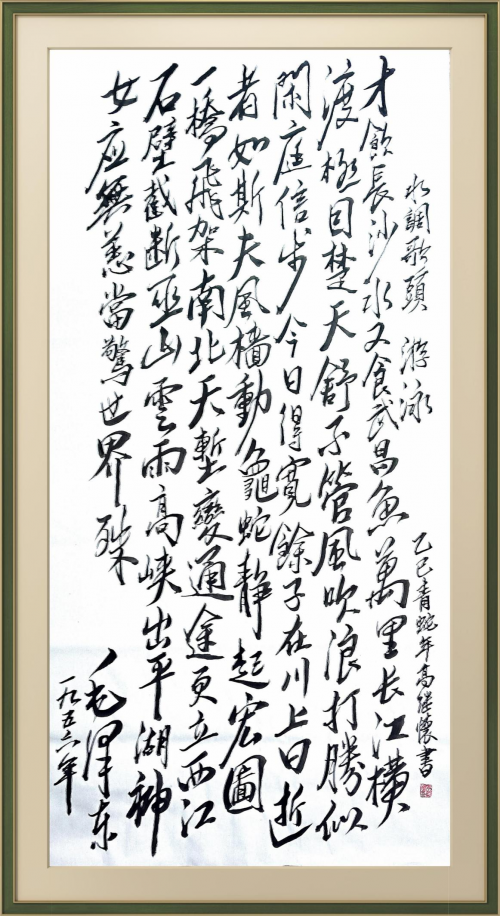 水調歌頭 游泳
乙巳青蛇年高继懷書
才飲長沙水又食武昌魚萬里长江橫
渡極目楚天舒不管風吹浪打勝似
閑庭信步今日得寬餘子在川上曰逝
者如斯夫風檣動龜蛇靜起宏圖
一橋飛架南北天塹變通途更立西江
石壁截斷巫山雲雨高峽出平湖神
女應無恙當驚世界殊
毛澤东
一九五六年